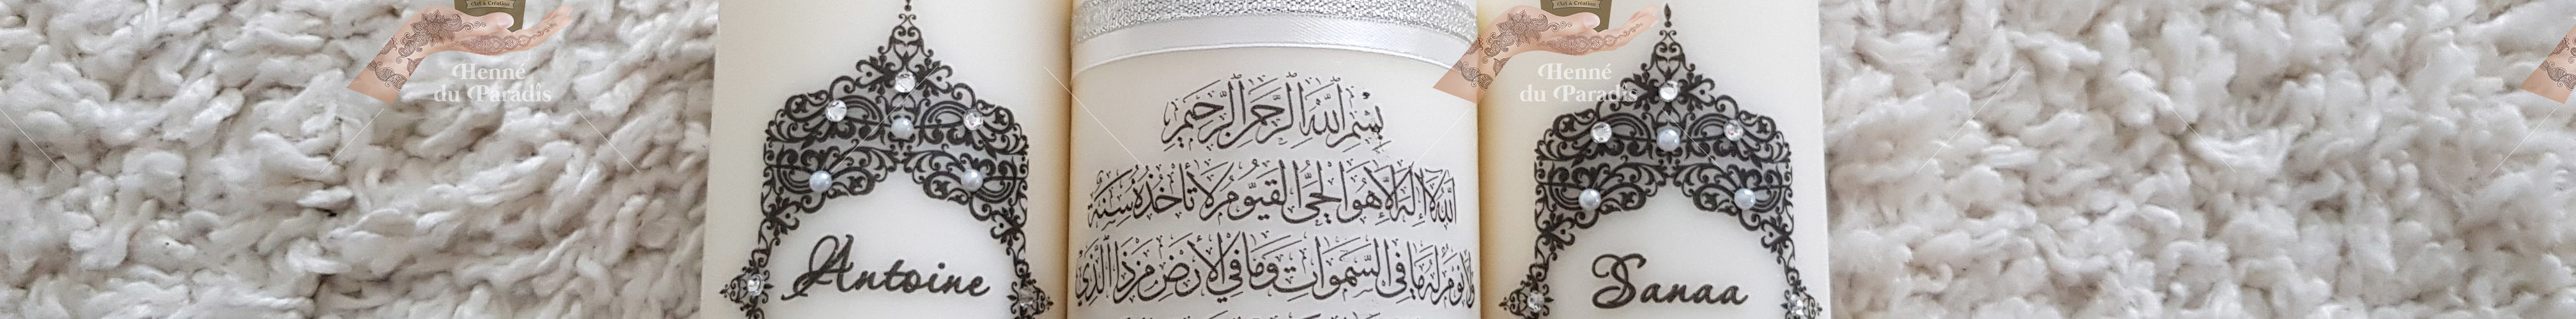 Art & Création
Henné
du Paradis
Antoine
بِسْمِ اللَّهِ الرَّحْمَٰنِ الرَّحِيمِ
اللَّهُ لَا إِلَٰهَ إِلَّا هُوَ الْحَيُّ الْقَيُّومُ لَا تَأْخُذُهُ سِنَةٌ
وَلَا نَوْمٌ لَهُ مَا فِي السَّمَوَاتِ وَمَا فِي الْأَرْضِ مَنْ ذَا الَّذِي
Art & Création
Henné
du Paradis
Sanaa